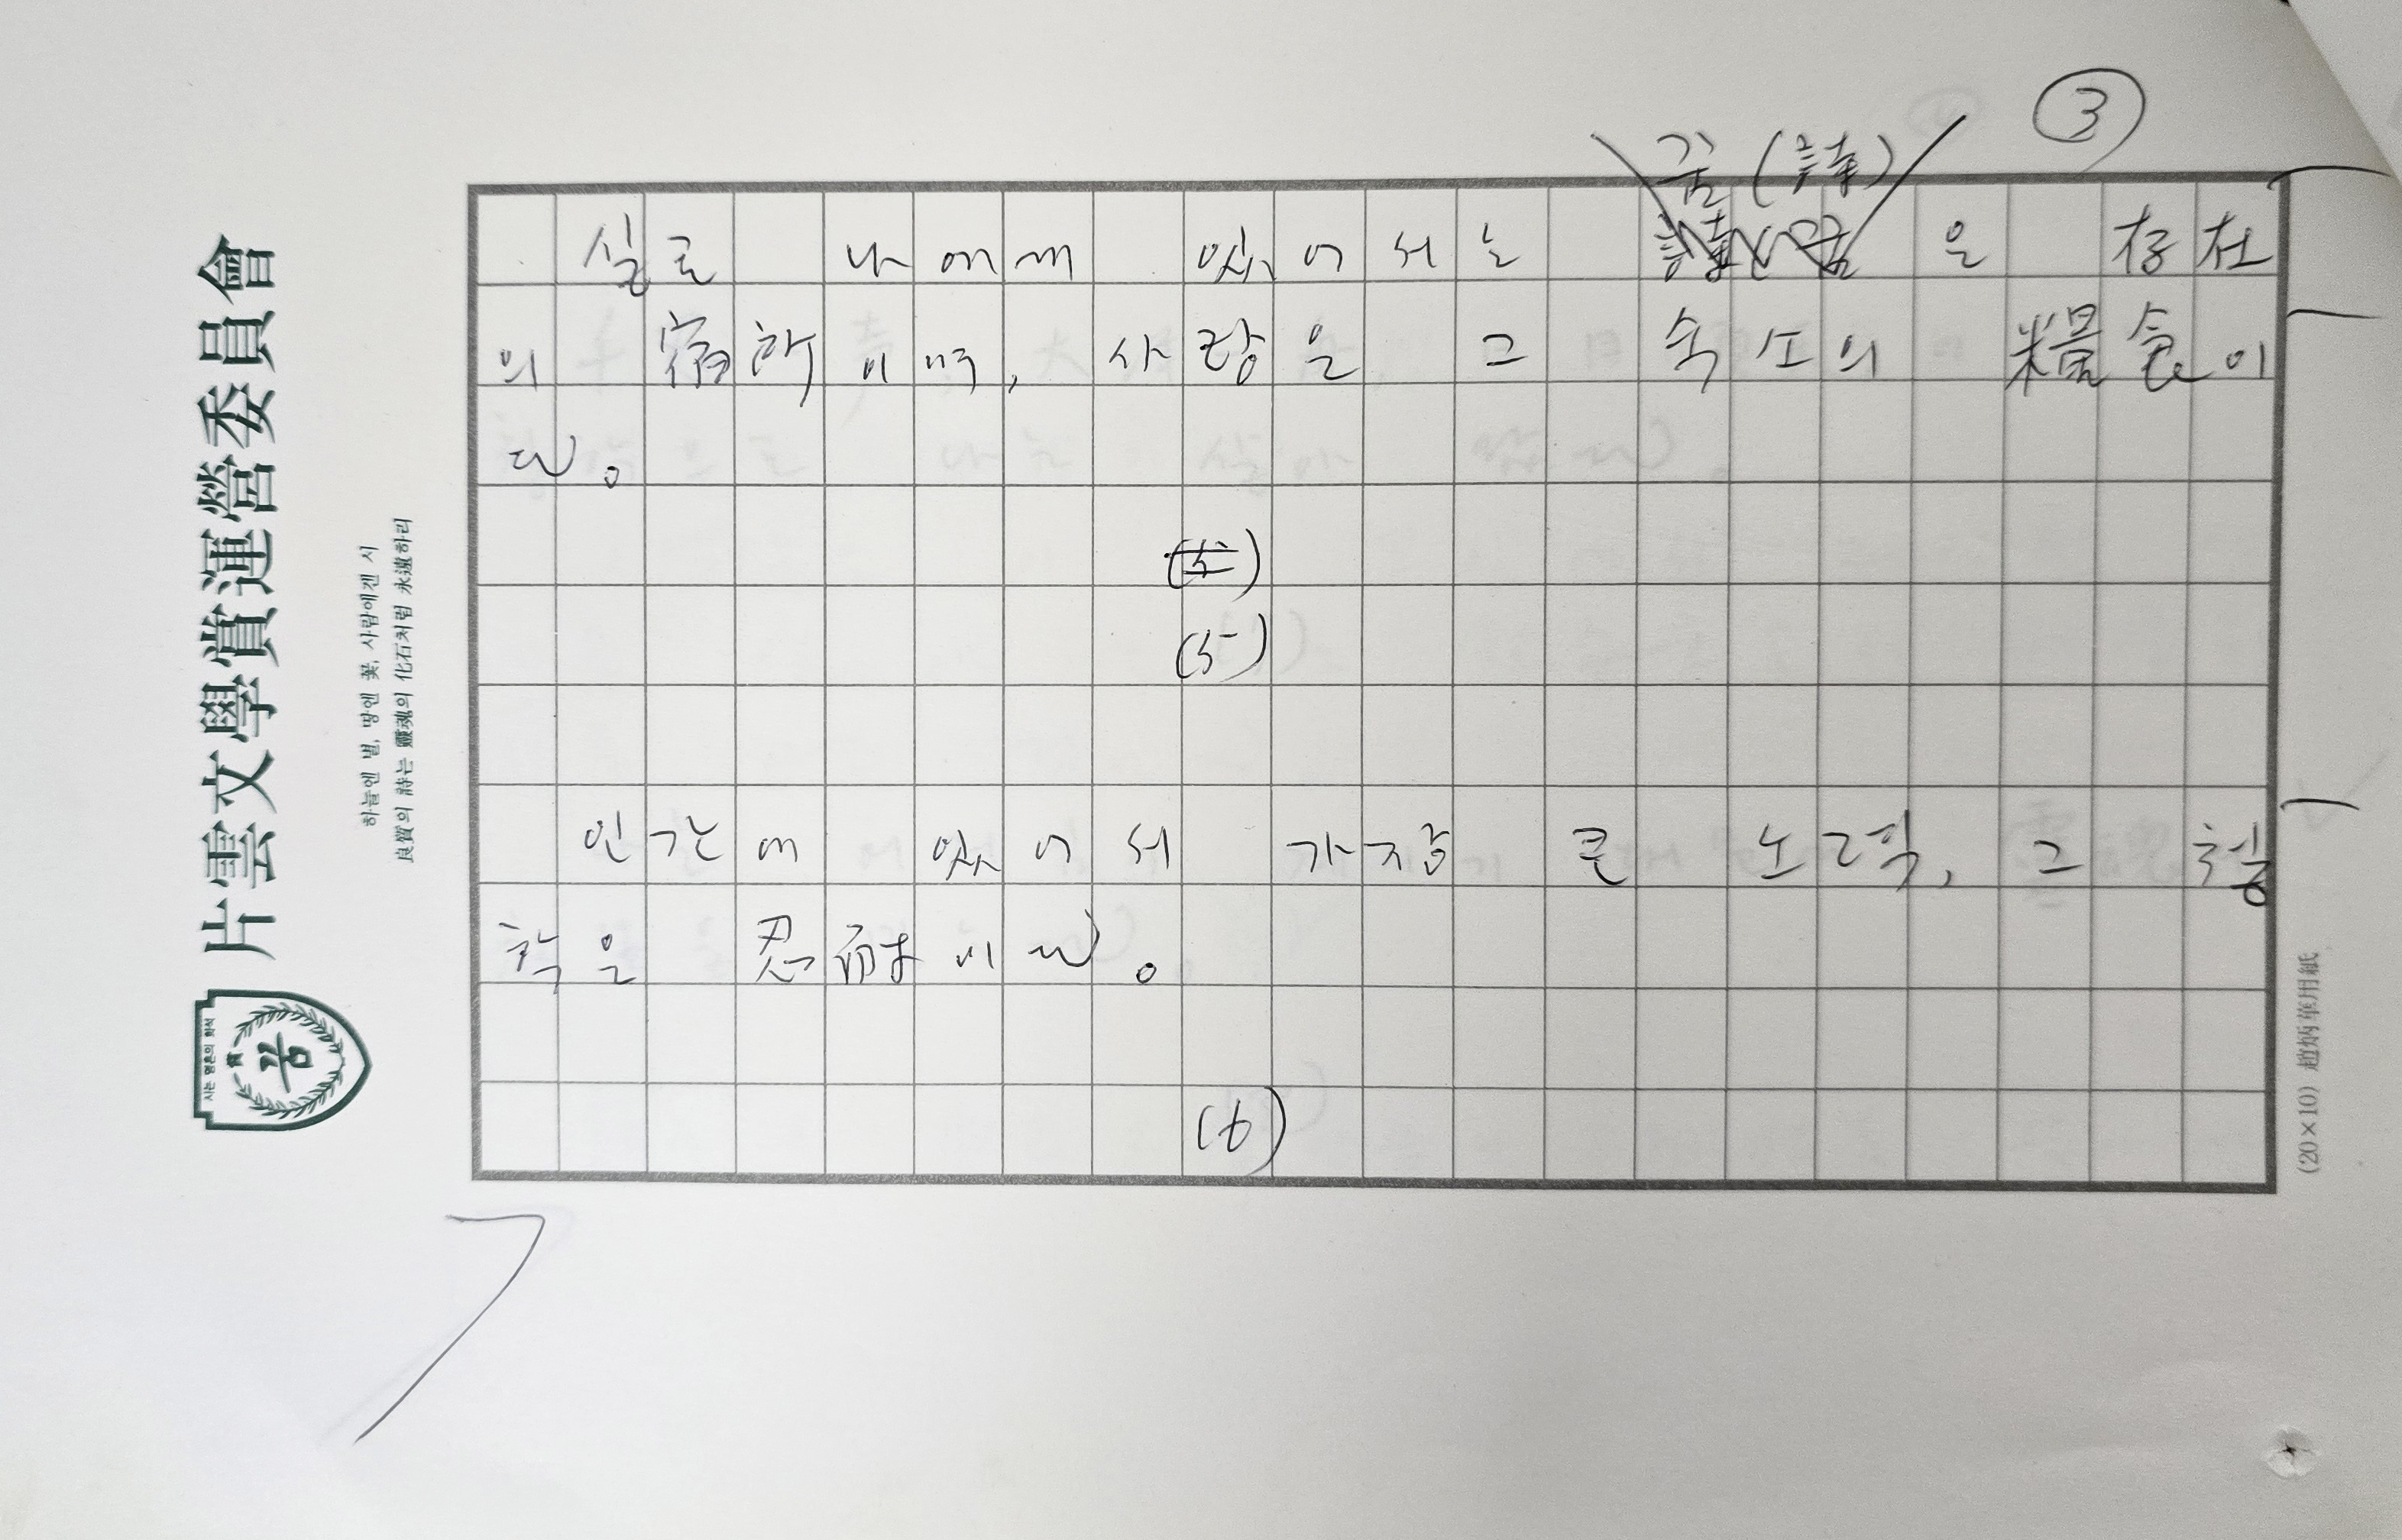 ③
꿈(詩)
실로 나에게 있어서는 은 存在
의 宿所이며, 사랑은 그 숙소의 糧食이
다。
(5)
인간에 있어서 가장 큰 노력, 그
은 忍耐이다。
(6)
片雲文學賞運營委員會
하늘엔 별, 땅엔 꽃, 사람에겐 시
良質의 詩는 靈魂의 化石처럼 永遠하리
시는 영혼의 화석
꿈
(20×10) 趙炳華用紙